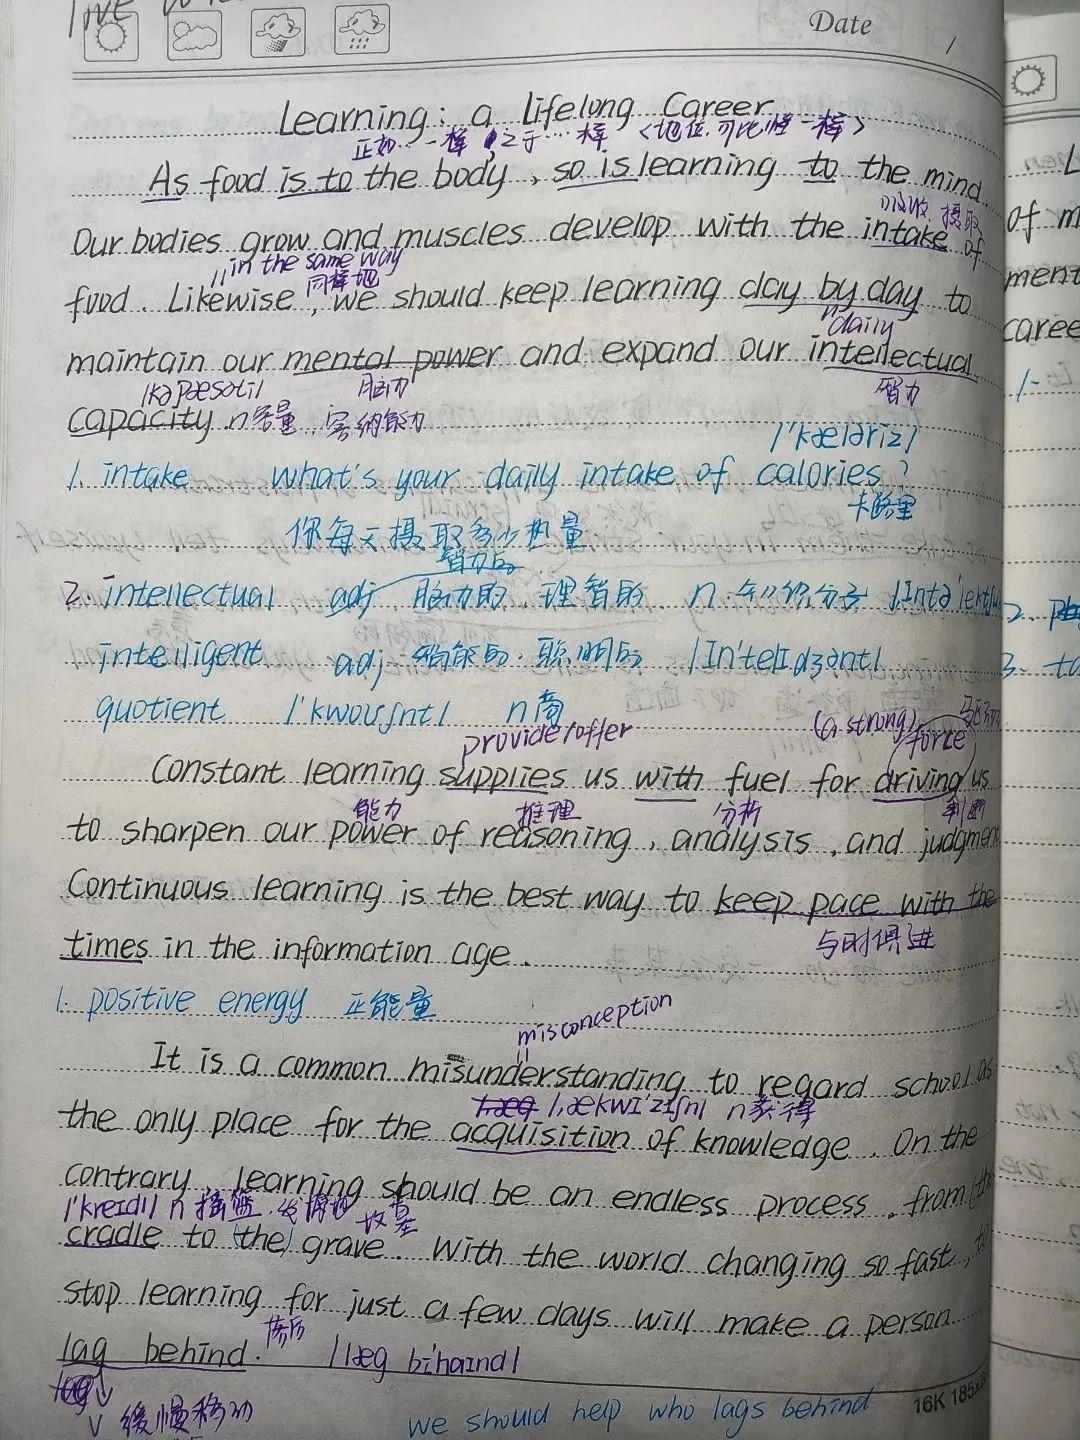 Date
Learning: a Lifelong Career
正如…一样 至于…一样 <地位.可比性一样>
As food is to the body, so is learning to the mind.
吸收 摄取
Our bodies grow and muscles develop with the intake of
in the same way
同样地
food. Likewise, we should keep learning day by day to
daily
maintain our mental power and expand our intellectual
/kəpaesəti/ 脑力 智力
capacity. n容量, 容纳能力
/'kæləriz/
1. intake what's your daily intake of calories?
卡路里
你每天摄取多少热量
智力的
2. intellectual adj. 脑力的, 理智的. n. 知识分子
intelligent adj 智能的. 聪明的 /In'telIdʒənt/
quotient /'kwouʃnt/ n商
provide/offer (a strong) force
Constant learning supplies us with fuel for driving us
能力 推理 分析 判断
to sharpen our power of reasoning, analysis, and judgment
Continuous learning is the best way to keep pace with the
times in the information age.
与时俱进
1. positive energy 正能量
misconception
It is a common misunderstanding to regard school as
/,ækwI'zIʃn/ n获得
the only place for the acquisition of knowledge. On the
contrary, learning should be an endless process, from (the
/'kreidl/ n 摇篮. 坟墓
cradle to (the) grave. With the world changing so fast, to
stop learning for just a few days will make a person
lag behind. 落后 /læg bi'haɪnd/
缓慢移动
we should help who lags behind
16K 185x
of m
ment
caree
1.
2.
3. to